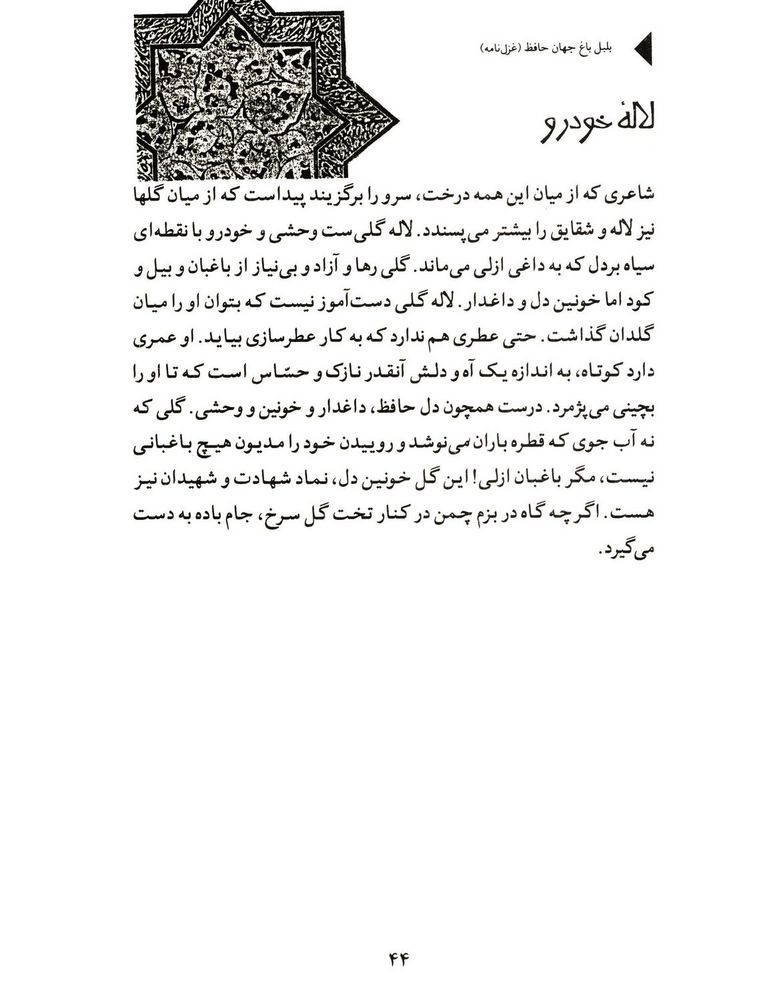 بلبل باغ جهان حافظ (غزل‌نامه)
لالهٔ خودرو
شاعری که از میان این همه درخت، سرو را برگزیند پیداست که از میان گلها
نیز لاله و شقایق را بیشتر می‌پسندد. لاله گلی‌ست وحشی و خودرو با نقطه‌ای
سیاه بردل که به داغی ازلی می‌ماند. گلی رها و آزاد و بی‌نیاز از باغبان و بیل و
کود اما خونین دل و داغدار. لاله گلی دست‌آموز نیست که بتوان او را میان
گلدان گذاشت. حتی عطری هم ندارد که به کار عطرسازی بیاید. او عمری
دارد کوتاه، به اندازه یک آه و دلش آنقدر نازک و حسّاس است که تا او را
بچینی می‌پژمرد. درست همچون دل حافظ، داغدار و خونین و وحشی. گلی که
نه آب جوی که قطره باران می‌نوشد و روییدن خود را مدیون هیچ باغبانی
نیست، مگر باغبان ازلی! این گل خونین دل، نماد شهادت و شهیدان نیز
هست. اگر چه گاه در بزم چمن در کنار تخت گل سرخ، جام باده به دست
می‌گیرد.
۴۴